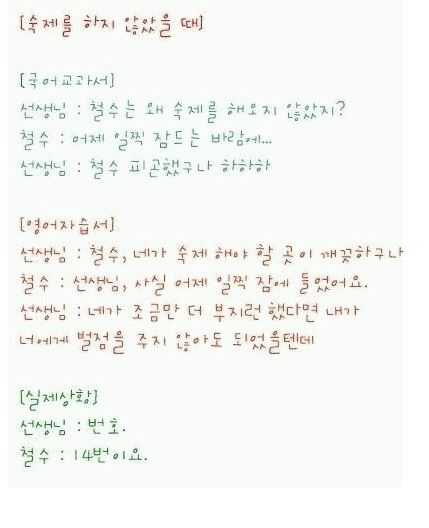 [숙제를 하지 않았을 때]
[국어교과서]
선생님 : 철수는 왜 숙제를 해오지 않았지?
철수 : 어제 일찍 잠드는 바람에...
선생님 : 철수 피곤했구나 하하하
[영어자습서]
선생님 : 철수, 네가 숙제 해야 할 곳이 깨끗하구나
철수 : 선생님, 사실 어제 일찍 잠에 들었어요.
선생님 : 네가 조금만 더 부지런 했다면 내가
너에게 벌점을 주지 않아도 되었을텐데
[실제상황]
선생님 : 번호.
철수 : 14번이요.